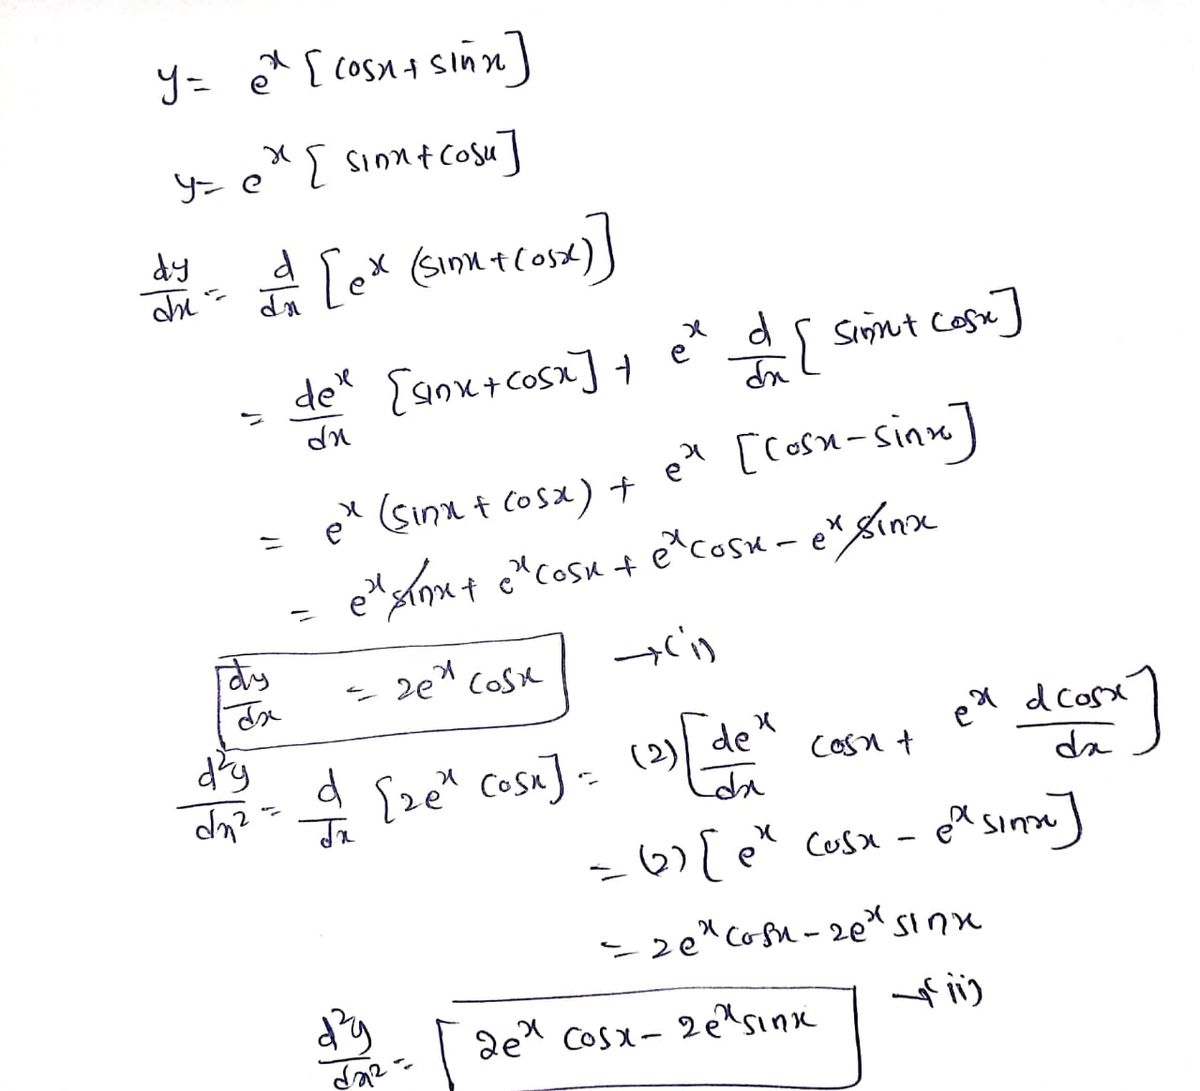 y = e^x [cosx + sinx]
y = e^x [sinx + cosx]
dy/dx = d/dx [e^x (sinx + cosx)]
= de^x/dx [sinx + cosx] + e^x d/dx [sinx + cosx]
= e^x (sinx + cosx) + e^x [cosx - sinx]
= e^x sinx + e^x cosx + e^x cosx - e^x sinx
dy/dx = 2e^x cosx → (i)
d²y/dx² = d/dx [2e^x cosx] = (2) [de^x/dx cosx + e^x dcosx/dx]
= (2) [e^x cosx - e^x sinx]
= 2e^x cosx - 2e^x sinx
d²y/dx² = 2e^x cosx - 2e^x sinx → (ii)